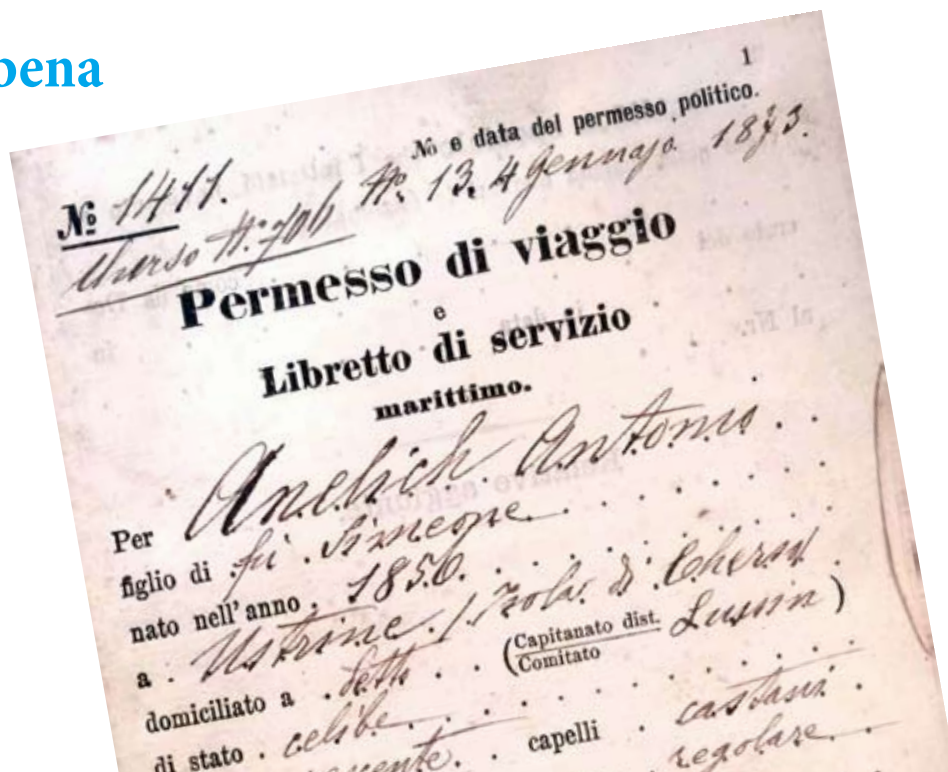 bena
1
No e data del permesso politico.
№ 1411. N: 13. 4 Gennajo 1873.
Cherso N: 706
Permesso di viaggio
e
Libretto di servizio
marittimo.
Per Anelich Antonio . .
figlio di fù Simeone
nato nell'anno 1856.
a . Ustrine / Isola di Cherso
domiciliato a . detto . . (Capitanato dist. Lussin)
Comitato
di stato . celibe
capelli . castani .
regolare